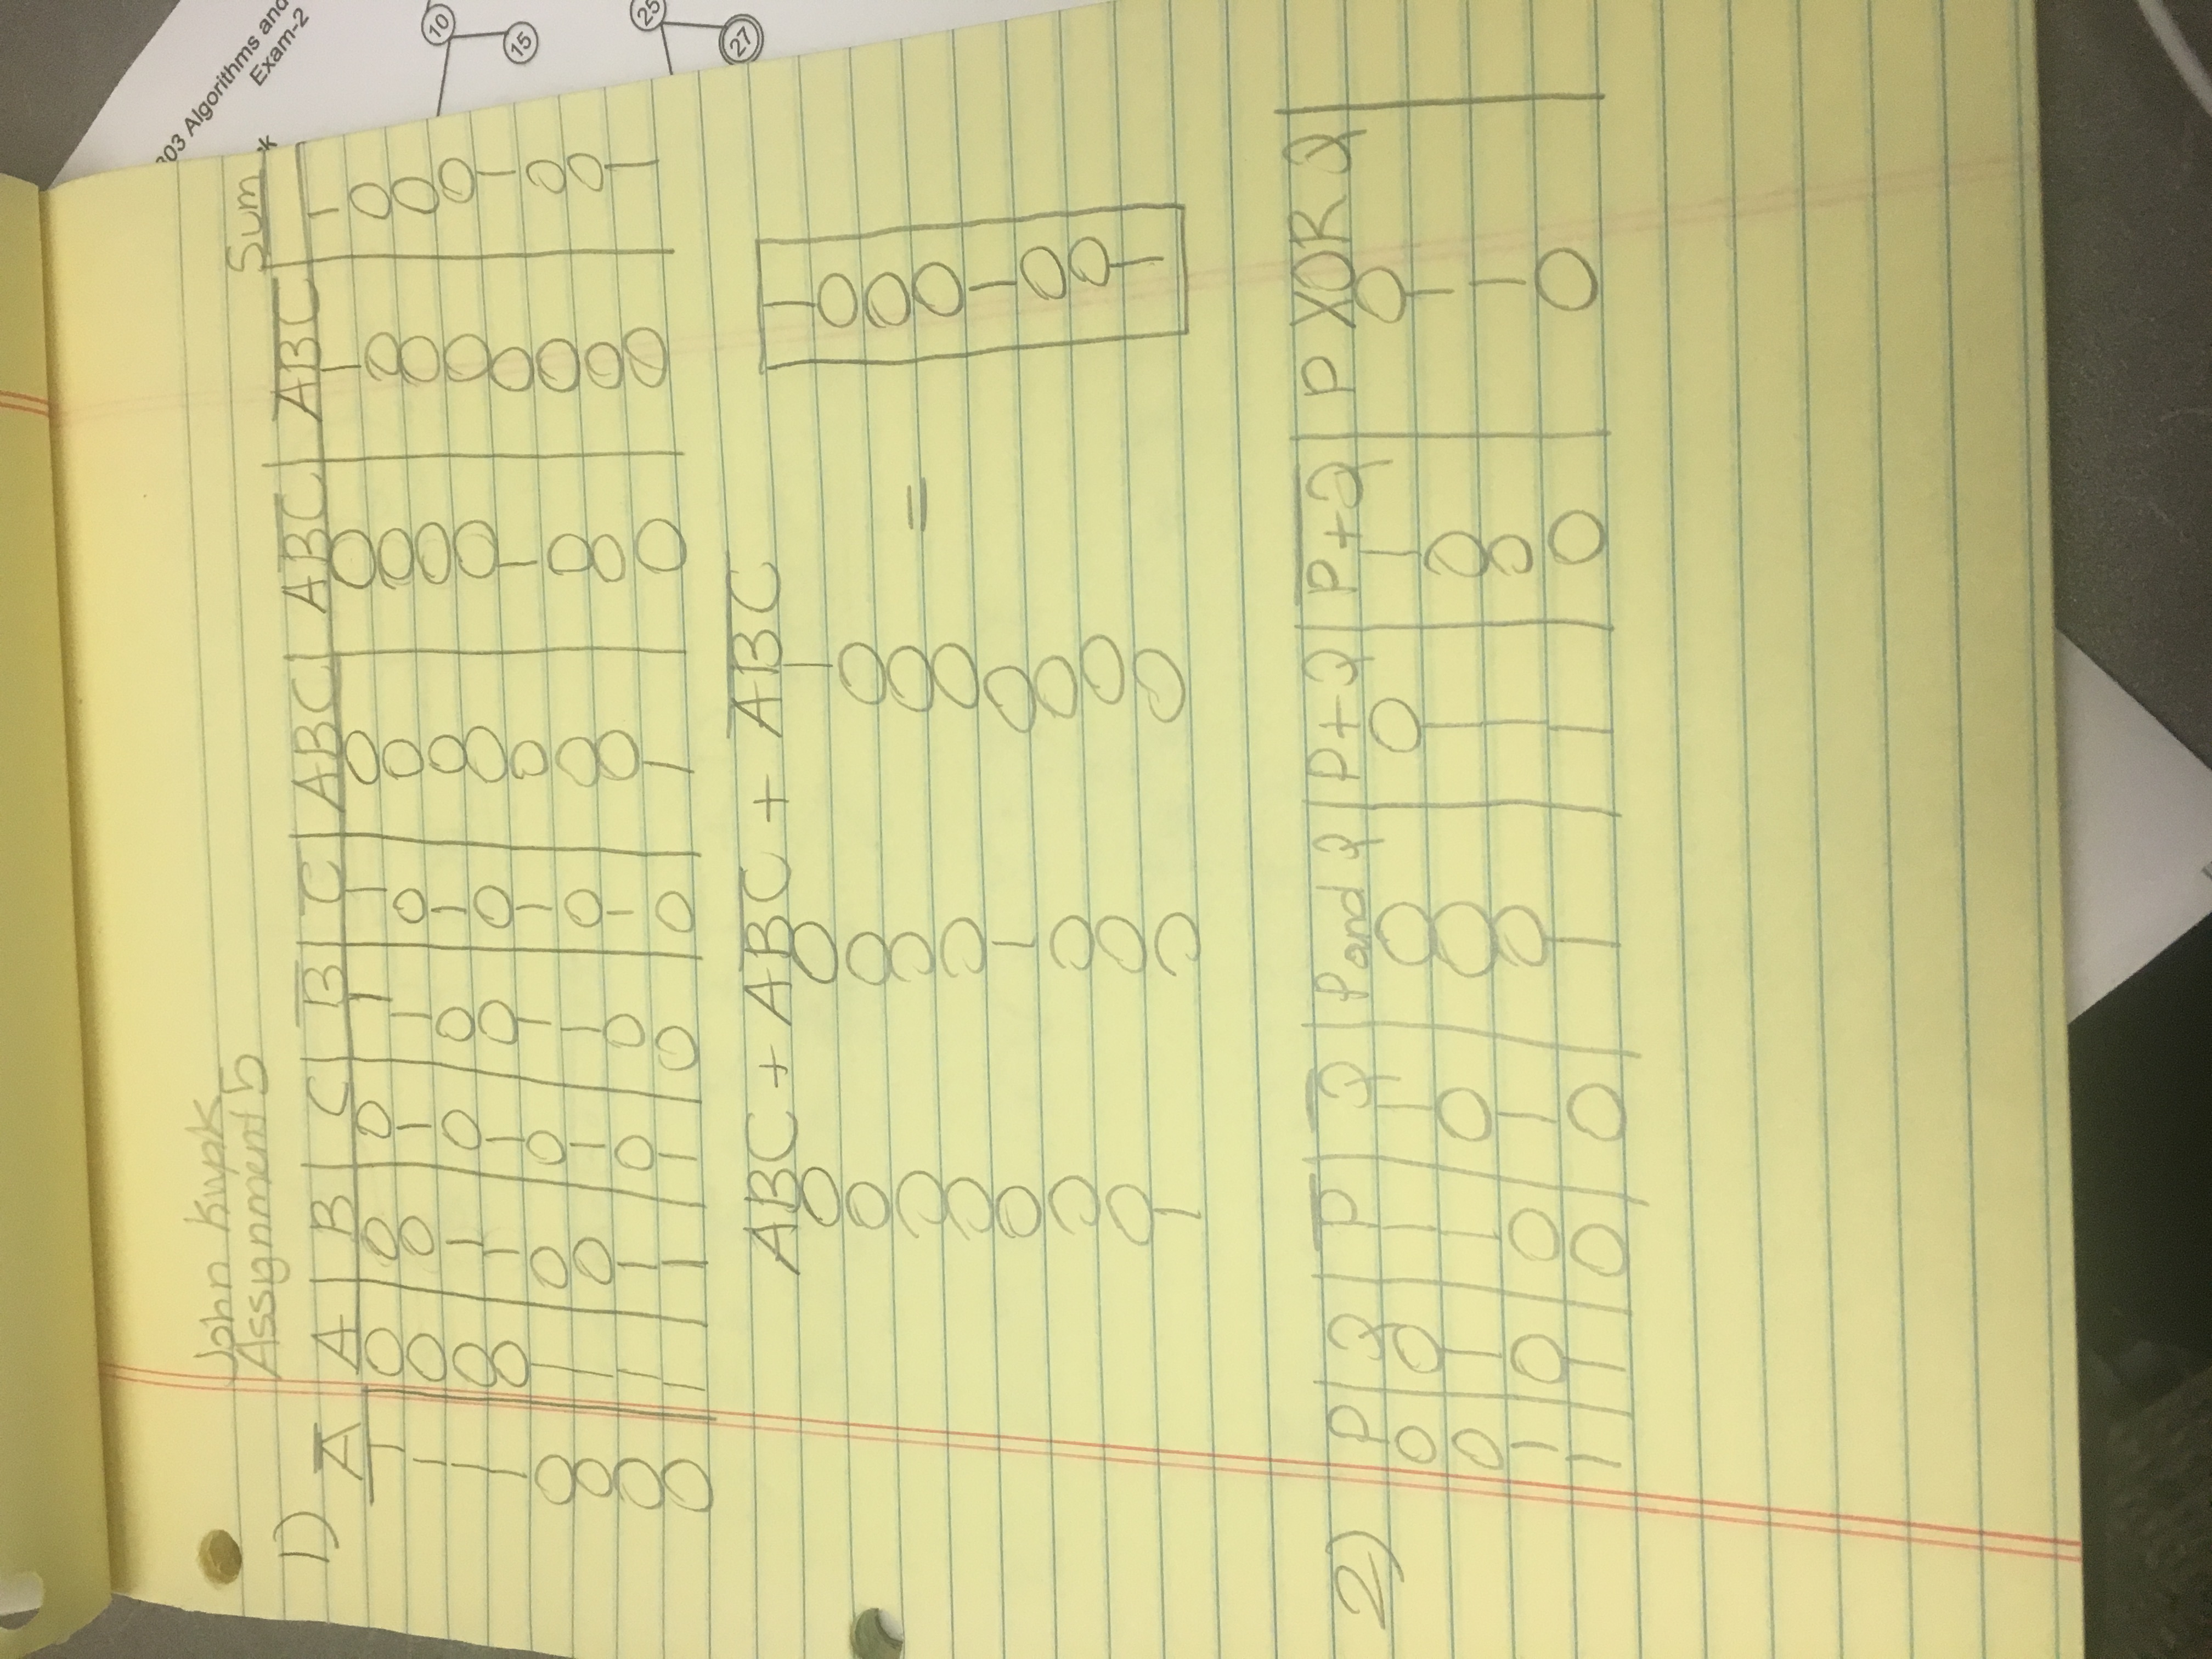 John Kupk
Assignment 5
Sum
1) A̅ A B C B̅ C̅ ABC AB̅C̅ A̅B̅C̅
1 0 0 0 1 1 0 0 1 1
1 0 0 1 1 0 0 0 0 0
1 0 1 0 0 1 0 0 0 0
1 0 1 1 0 0 0 0 0 0
0 1 0 0 1 1 0 1 0 1
0 1 0 1 1 0 0 0 0 0
0 1 1 0 0 1 0 0 0 0
0 1 1 1 0 0 1 0 0 1
ABC + AB̅C̅ + A̅B̅C̅
0 0 1 1
0 0 0 0
0 0 0 0
0 0 0 = 0
0 1 0 1
0 0 0 0
0 0 0 0
1 0 0 1
2) P Q P̅ Q̅ P and Q P+Q P̅+̅Q̅ P XOR Q
0 0 1 1 0 0 1 0
0 1 1 0 0 1 0 1
1 0 0 1 0 1 0 1
1 1 0 0 1 1 0 0
303 Algorithms and
Exam-2
10
15
25
27